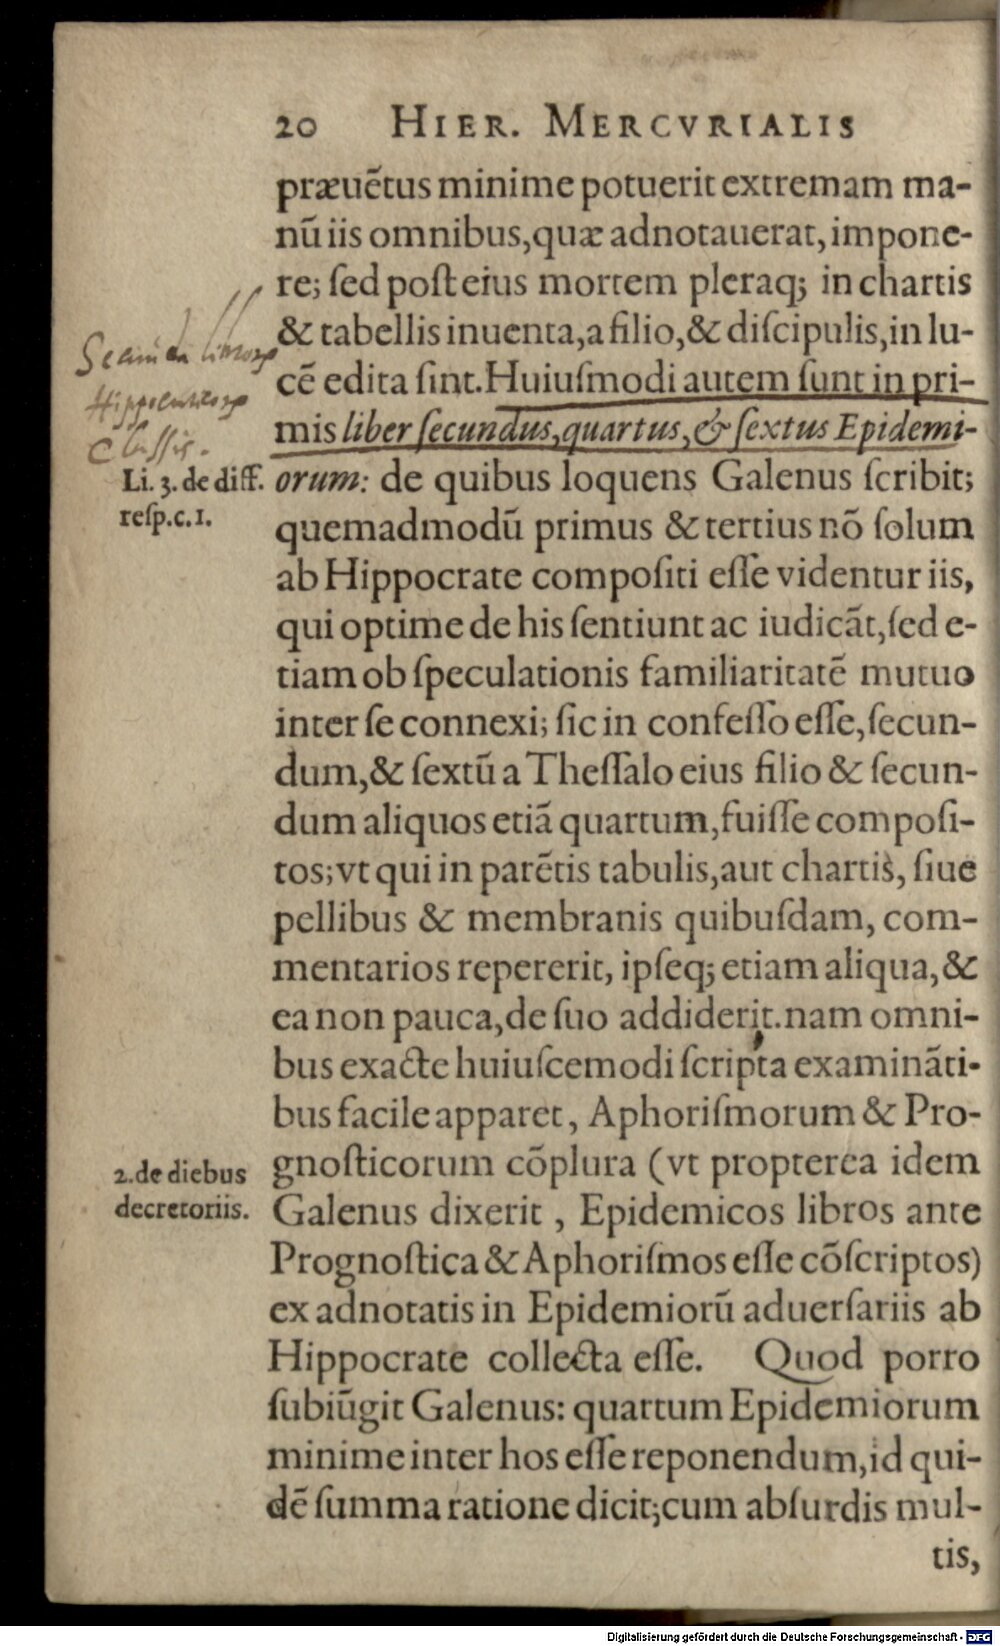 20 HIER. MERCVRIALIS
præuẽtus minime potuerit extremam ma-
nũ iis omnibus, quæ adnotauerat, impone-
re; ſed poſt eius mortem pleraq; in chartis
& tabellis inuenta, a filio, & diſcipulis, in lu-
cẽ edita ſint. Huiuſmodi autem ſunt in pri-
mis liber ſecundus, quartus, & ſextus Epidemi-
Secundi librorum
Hippocraticorum
Claſſis.
Li. 3. de diff.
reſp. c. 1.
orum: de quibus loquens Galenus ſcribit;
quemadmodũ primus & tertius nõ ſolum
ab Hippocrate compoſiti eſſe videntur iis,
qui optime de his ſentiunt ac iudicãt, ſed e-
tiam ob ſpeculationis familiaritatẽ mutuo
inter ſe connexi; ſic in confeſſo eſſe, ſecun-
dum, & ſextũ a Theſſalo eius filio & ſecun-
dum aliquos etiã quartum, fuiſſe compoſi-
tos; vt qui in parẽtis tabulis, aut chartis, ſiue
pellibus & membranis quibuſdam, com-
mentarios repererit, ipſeq; etiam aliqua, &
ea non pauca, de ſuo addiderit. nam omni-
bus exacte huiuſcemodi ſcripta examinãti-
bus facile apparet, Aphoriſmorum & Pro-
2. de diebus
decretoriis.
gnoſticorum cõplura (vt propterea idem
Galenus dixerit, Epidemicos libros ante
Prognoſtica & Aphoriſmos eſſe cõſcriptos)
ex adnotatis in Epidemiorũ aduerſariis ab
Hippocrate collecta eſſe. Quod porro
ſubiũgit Galenus: quartum Epidemiorum
minime inter hos eſſe reponendum, id qui-
dẽ ſumma ratione dicit; cum abſurdis mul-
tis,
Digitalisierung gefördert durch die Deutsche Forschungsgemeinschaft - DFG